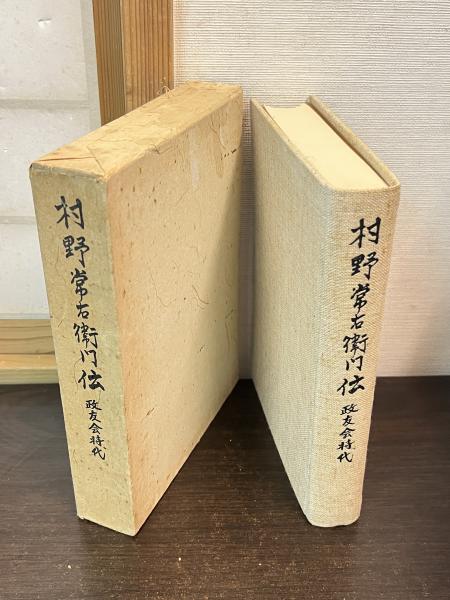 村野常右衛门伝
政友会時代
村野常右衛门伝
政友会時代